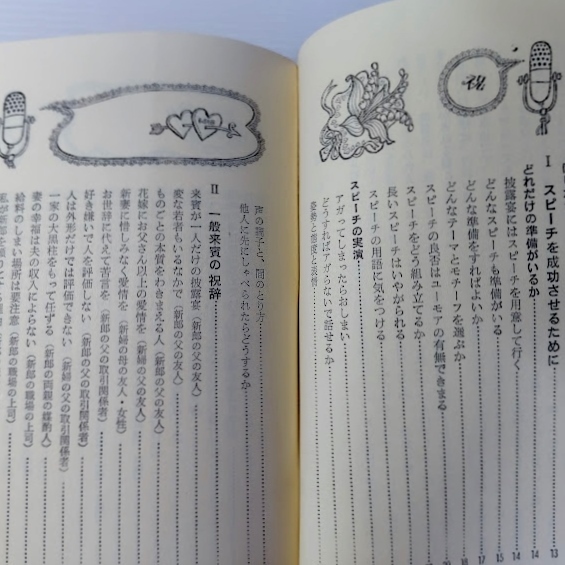 I スピーチを成功させるために
どれだけの準備がいるか
披露宴にはスピーチを用意して行く
どんなスピーチも準備がいる
どんな準備をすればよいか
どんなテーマとモチーフを選ぶか
スピーチの良否はユーモアの有無できまる
スピーチをどう組み立てるか
長いスピーチはいやがられる
スピーチの用語に気をつける
スピーチの実演
アガってしまったらおしまい
どうすればアガらないで話せるか
姿勢と態度と表情
声の調子と、間のとり方
他人に先にしゃべられたらどうするか
II 一般来賓の祝辞
来賓が一人だけの披露宴(新郎の父の友人)
変な若者もいるなかで(新郎の父の友人)
ものごとの本質をわきまえる人(新郎の父の友人)
花嫁にお父さん以上の愛情を(新婦の父の友人)
新妻に惜しみなく愛情を(新婦の母の友人・女性)
お世辞に代えて苦言を(新郎の父の取引関係者)
好き嫌いで人を評価しない(新郎の父の取引関係者)
人は外形だけでは評価できない(新婦の父の取引関係者)
一家の大黒柱をもって任ずる(新郎の両親の媒酌人)
妻の幸福は夫の収入によらない(新郎の職場の上司)
給料のしまい場所は要注意(新郎の職場の上司)
13
14
14
15
17